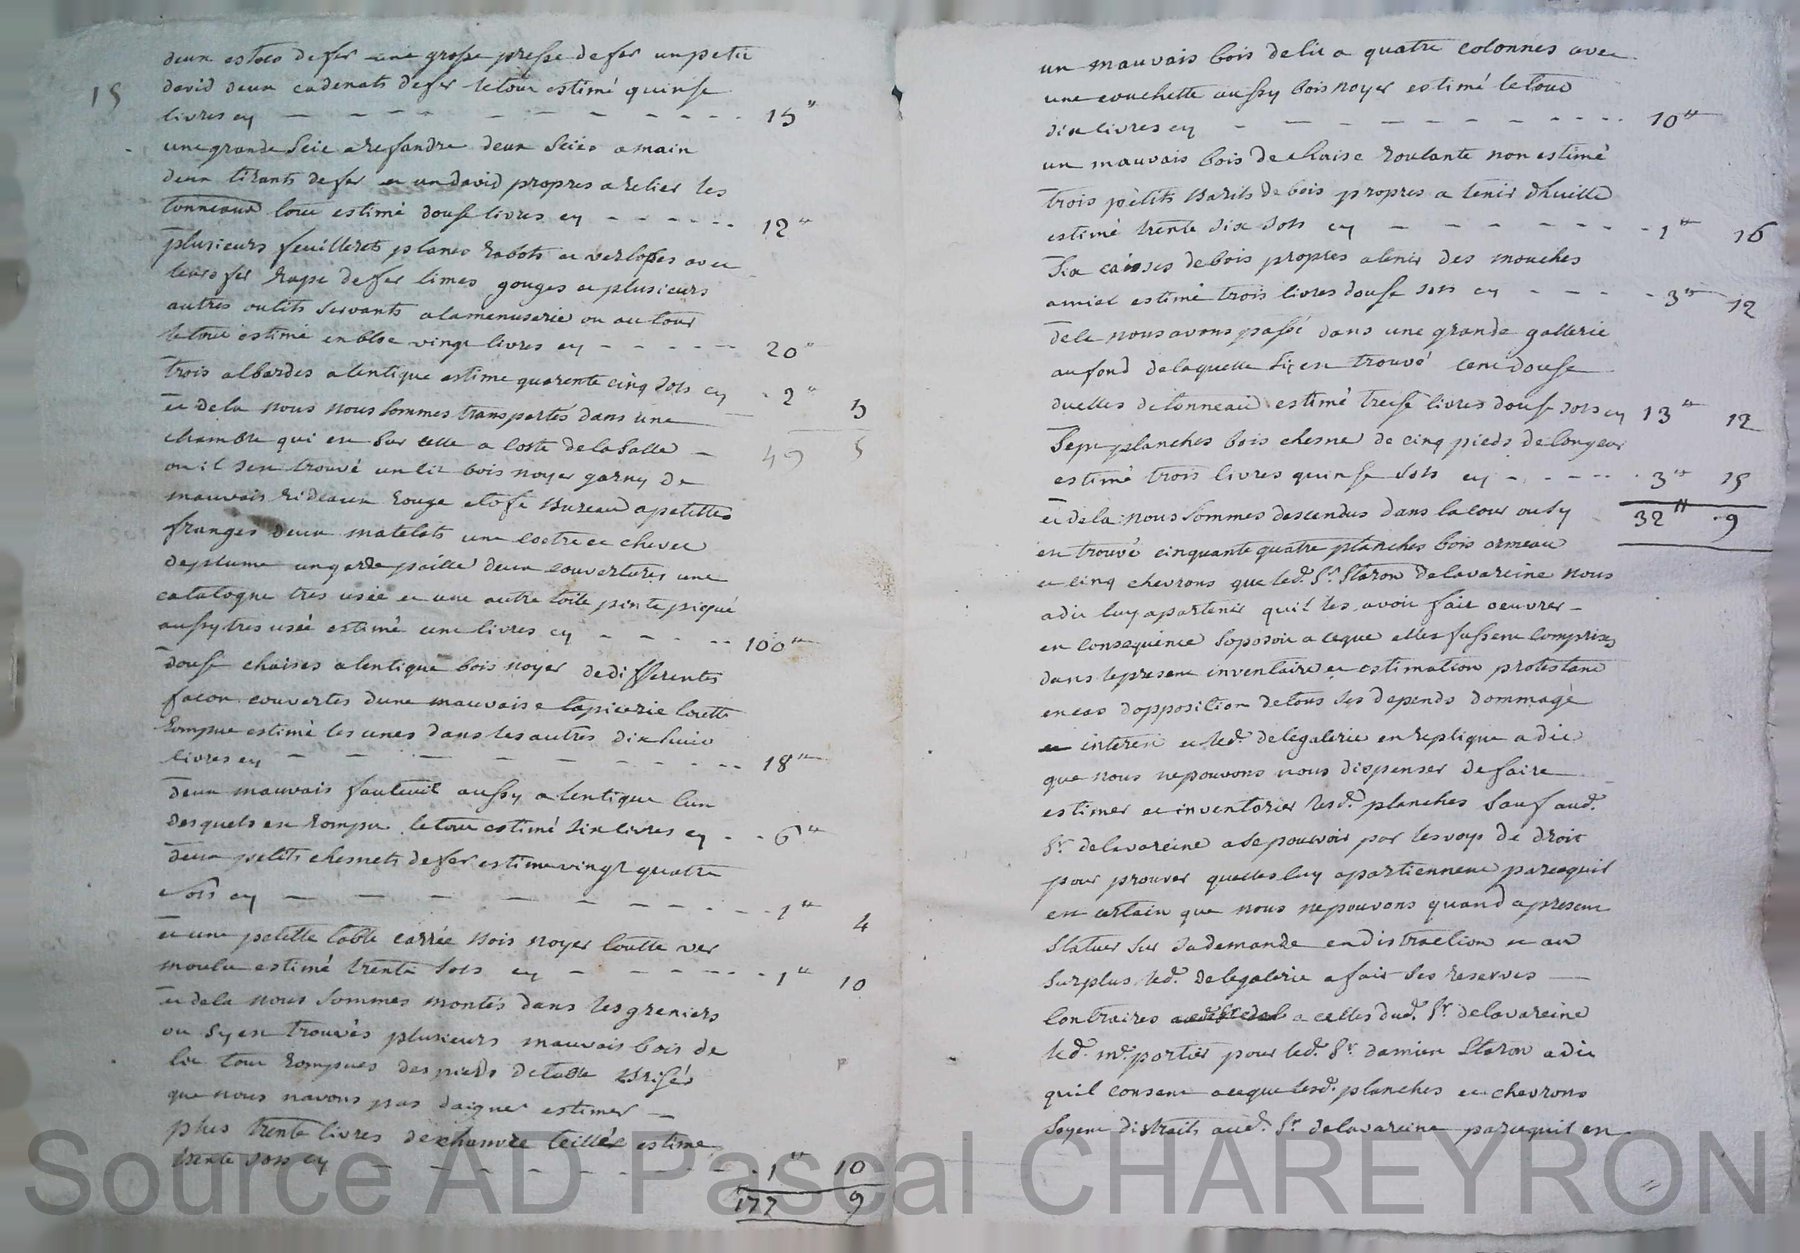 15
deux estocs de fer une grosse presse de fer un petit
david deux cadenats de fer le tout estimé quinse
livres cy 15"
une grande scie a refandre deux scies a main
deux tirants de fer et un david propres a relier les
tonneaux tout estimé douse livres cy 12"
plusieurs feuillerets planes rabots et verlopes avec
leurs fer rape de fer limes gouges et plusieurs
autres outils servants a la menuserie ou au tour
le tout estimé en bloc vingt livres cy 20"
trois albardes a lentique estime quarente cinq sols cy 2" 5
et de la nous nous sommes transportés dans une
chambre qui est sur celle a costé de la salle 49 5
ou il sen trouvé un lit bois noyer garny de
mauvais rideaux rouge etofe bureau a petittes
franges deux matelats une coetre et chevet
de plume un garde paille deux couvertures une
catalogne tres usée et une autre toile peinte piqué
aussy tres usée estimé cent livres cy 100"
douse chaises a lentique bois noyer de differentes
facon couvertes dune mauvaise tapicerie toutte
rompue estimé les unes dans les autres dix huit
livres cy 18"
deux mauvais fauteuil aussy a lentique lun
desquels est rompu le tout estimé six livres cy 6"
deux petits chesnets de fer estime vingt quatre
sols cy 1" 4
et une petitte table carrée bois noyer toutte ver
moulu estimé trente sols cy 1" 10
et de la nous sommes montés dans les greniers
ou sy est trouvés plusieurs mauvais bois de
lit tout rompues des pieds de table brisés
que nous navons pas daigner estimer
plus trente livres de chanvre teillé estime
trente sols cy 1" 10
177 9
un mauvais bois de lit a quatre colonnes avec
une couchette aussy bois noyer estimé le tout
dix livres cy 10"
un mauvais bois de chaise roulante non estimé
trois petits barils de bois propres a tenir dhuille
estimé trente six sols cy 1" 16
six caisses de bois propres a tenir des mouches
a miel estimé trois livres douse sols cy 3" 12
de la nous avons passé dans une grande gallerie
au fond de laquelle sy est trouvé cent douse
duelles de tonneau estimé treise livres douse sols cy 13" 12
sept planches bois chesne de cinq pieds de longeur
estimé trois livres quinse sols cy 3" 15
et de la nous sommes descendus dans la cour ou sy 32" 9
est trouvé cinquante quatre planches bois ormeau
et cinq chevrons que led. Sr. Staron delavareine nous
a dit luy apartenir quil les avoit fait oeuvrer
en consequence soposoit a ceque elles fussent comprises
dans le present inventaire et estimation protestant
en cas dopposition de tous ses depends dommage
interest et led. delegalerie en replique a dit
que nous ne pouvons nous dispenser de faire
estimer et inventorier lesd. planches sauf aud.
Sr. delavareine a se pouvoir par les voys de droit
pour prouver quelles luy apartiennent parcequil
est certain que nous ne pouvons quand a present
statuer sur sa demande en distraction et au
surplus led. delegalerie a fait ses reserves
contraires a celles dud. Sr. delavareine
led. me. portier pour led. Sr. damien Staron a dit
quil consent a ceque lesd. planches et chevrons
soyent distraits aud. Sr. delavareine parcequil est
Source AD Pascal CHAREYRON